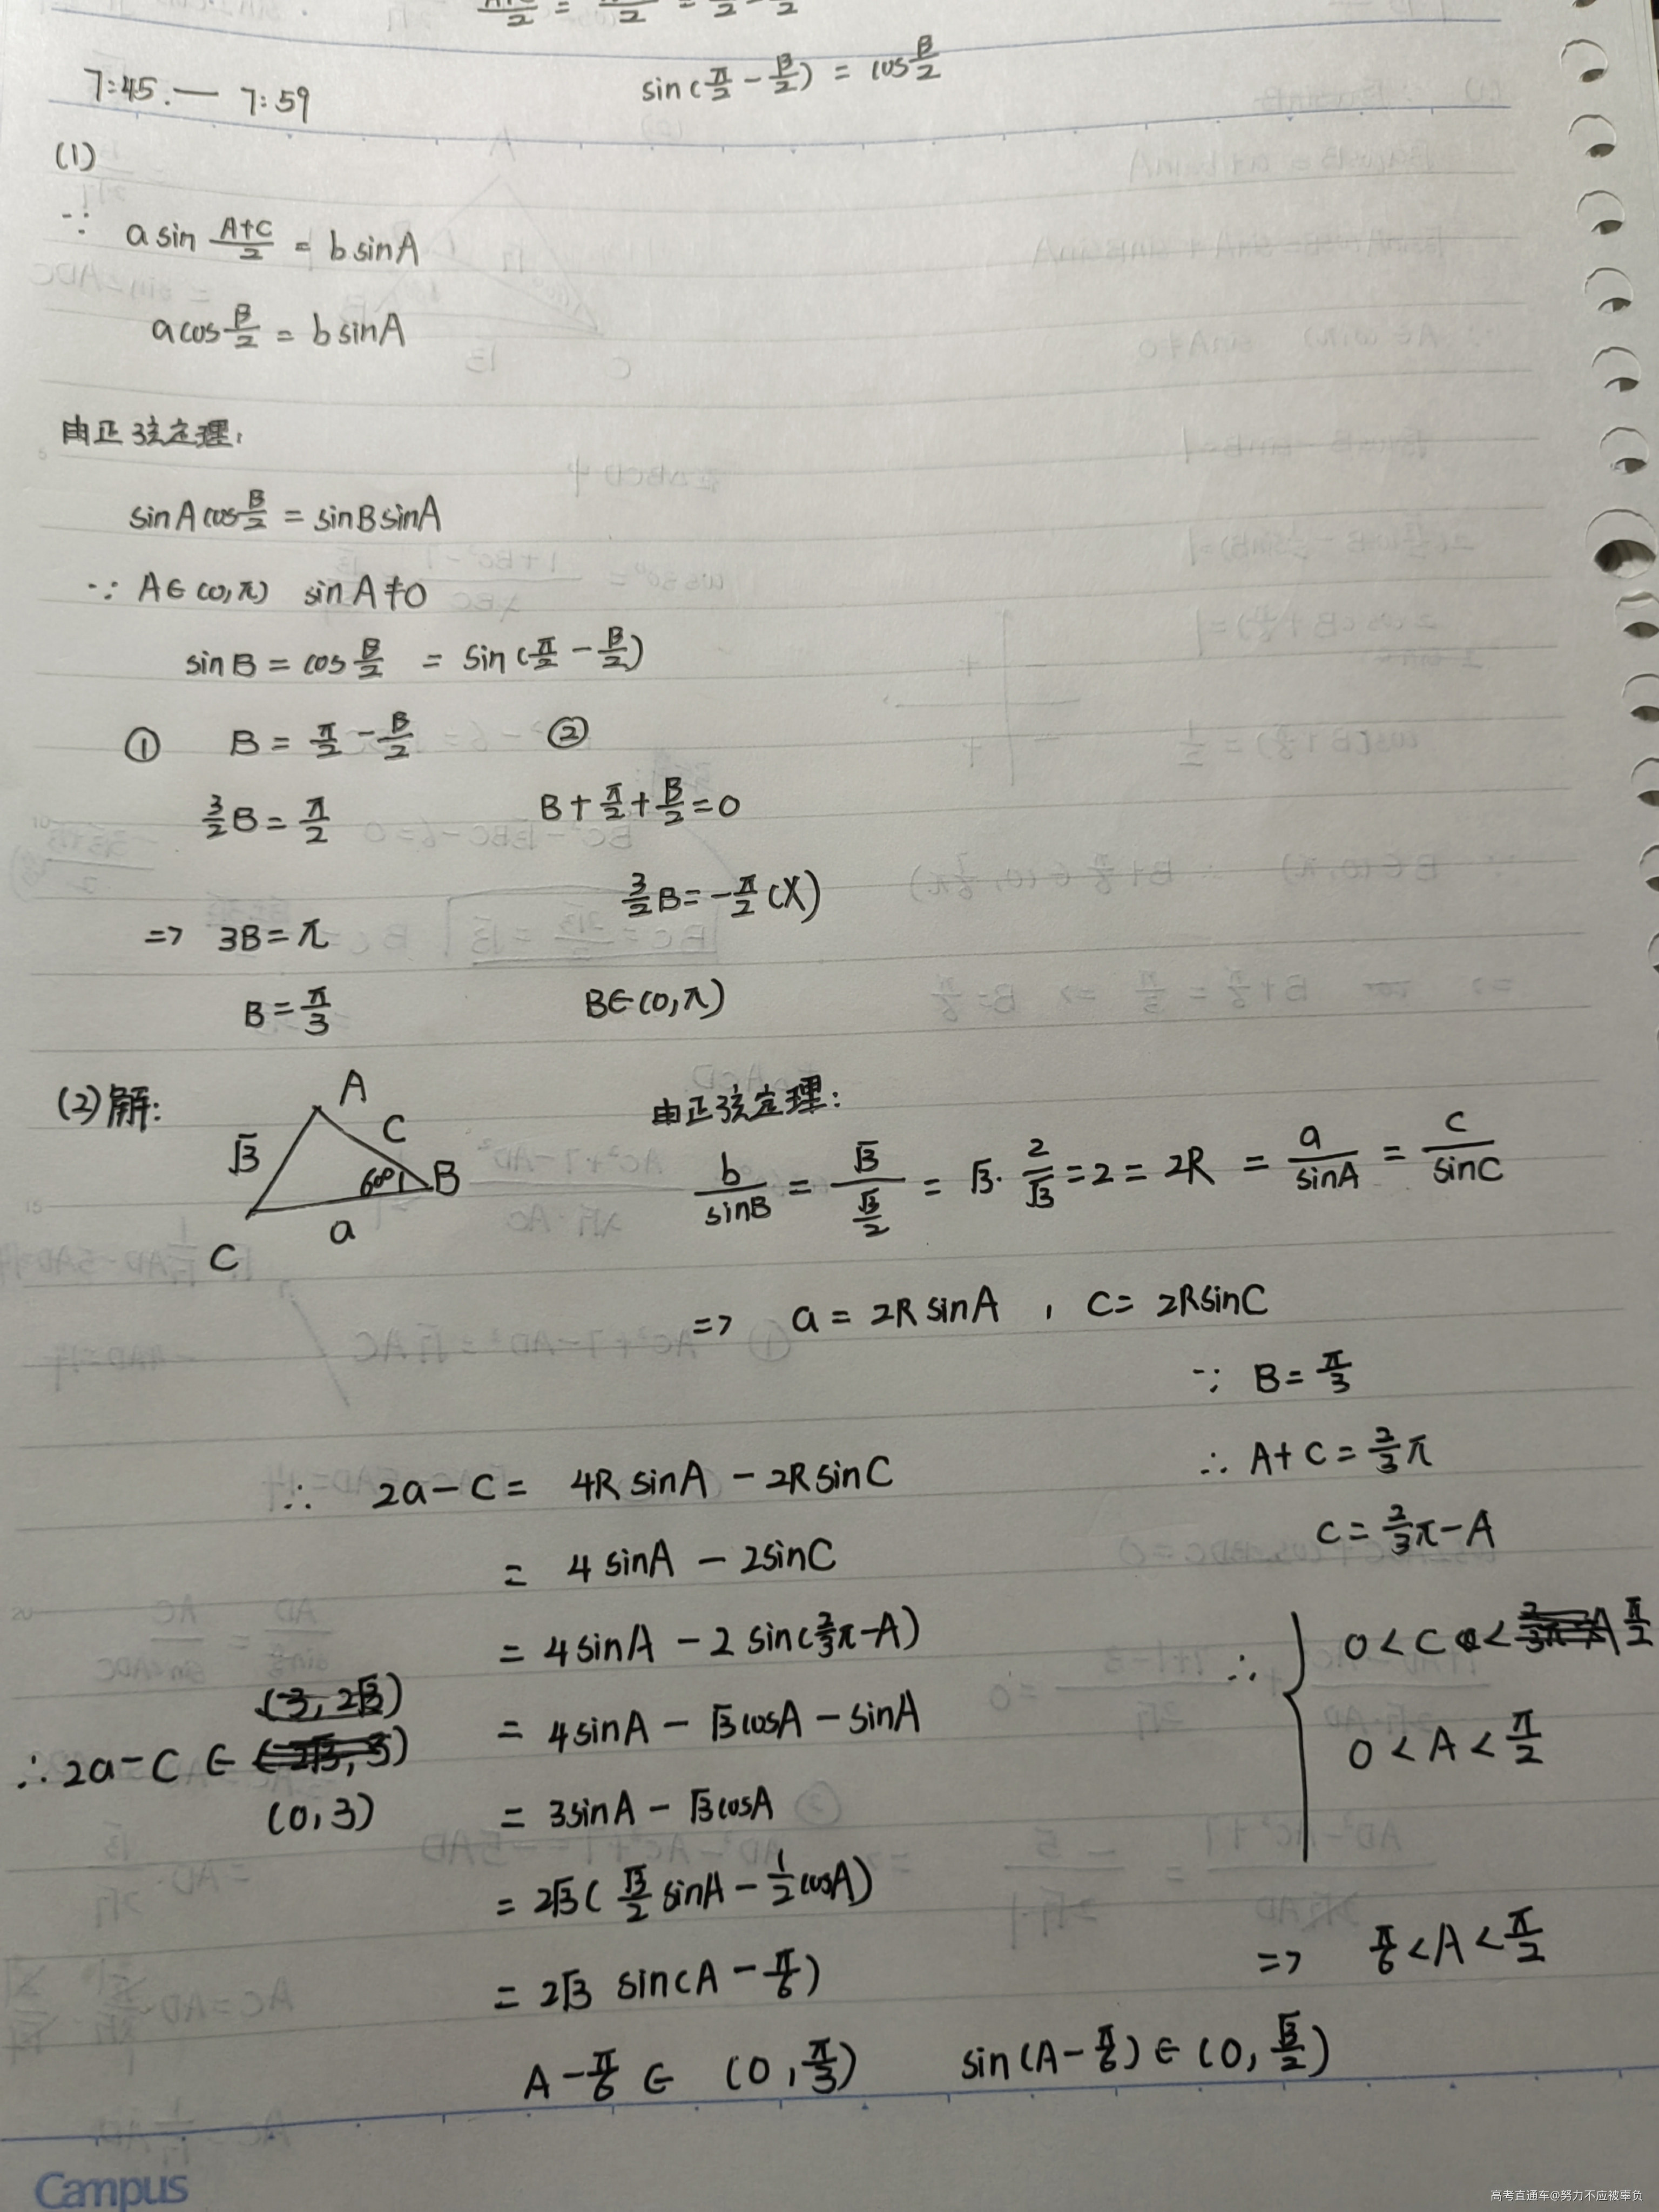 7:45 — 7:59
sin(π/2 - B/2) = cos B/2
(1)
∵ a sin (A+C)/2 = b sinA
a cos B/2 = b sinA
由正弦定理:
sinA cos B/2 = sinB sinA
∵ A∈(0,π) sinA≠0
sinB = cos B/2 = sin(π/2 - B/2)
① B = π/2 - B/2 ②
3/2 B = π/2 B + π/2 + B/2 = 0
3/2 B = -π/2 (X)
=> 3B = π
B = π/3 B∈(0,π)
(2)解: 由正弦定理:
A
√3 C
60° B
a
C
b/sinB = √3/(√3/2) = √3 · 2/√3 = 2 = 2R = a/sinA = c/sinC
=> a = 2R sinA , c = 2R sinC
∵ B = π/3
∴ A + C = 2/3 π
C = 2/3 π - A
∴ 2a - c = 4R sinA - 2R sinC
= 4 sinA - 2 sinC
= 4 sinA - 2 sin(2/3 π - A)
= 4 sinA - √3 cosA - sinA
= 3 sinA - √3 cosA
= 2√3 ( √3/2 sinA - 1/2 cosA)
= 2√3 sin(A - π/6)
∴ 0 < C < π/2
0 < A < π/2
=> π/6 < A < π/2
A - π/6 ∈ (0, π/3) sin(A - π/6) ∈ (0, √3/2)
(-3, 2√3)
∴ 2a - c ∈ (-2√3, 3)
(0, 3)
Campus
高考直通车@努力不应被辜负